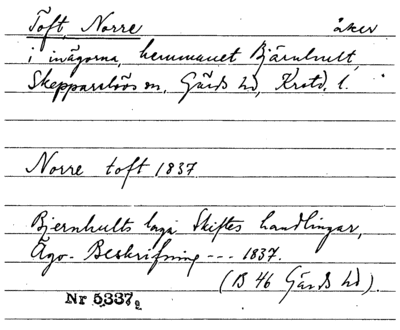 Toft, Norre åker
i inägorna, hemmanet Bjärnhult,
Skepparslövs sn, Gärds hd, Krstd. l.
Norre toft 1837
Bjernhults laga Skiftes handlingar,
Ägo-Beskrifning --- 1837.
(B 46 Gärds hd).
Nr 5,337